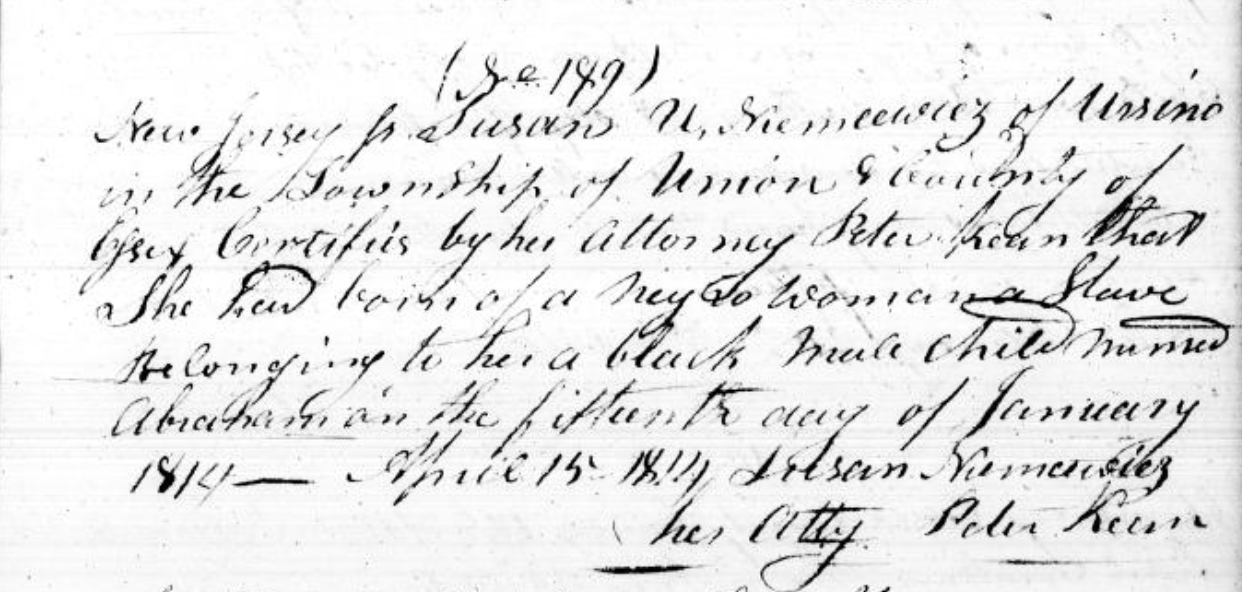 (No 189)
New Jersey ss Susan U. Niemcewicz of Ursino
in the Township of Union & County of
Essex Certifies by her Attorney Peter Kean that
She had born of a Negro Woman a Slave
belonging to her a black Male Child named
Abraham on the fifteenth day of January
1814 — April 15 1814 Susan Niemcewicz
her Atty Peter Kean